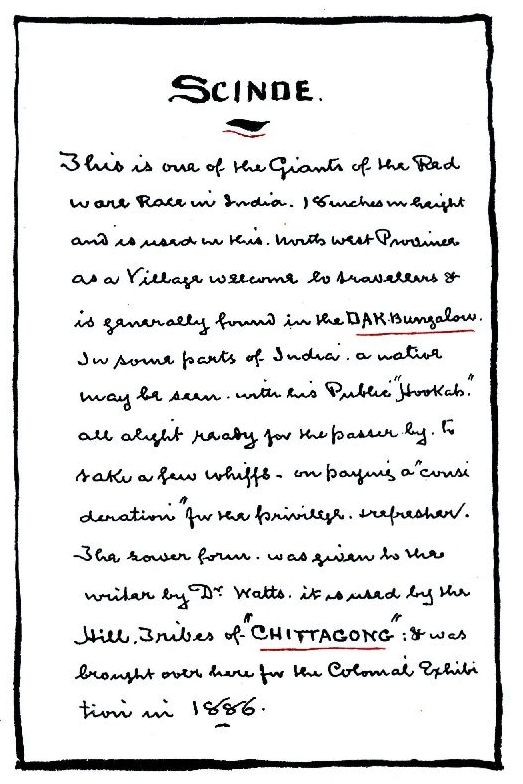 SCINDE.
This is one of the Giants of the Red
ware Race in India. 18 inches in height
and is used in this. North West Province
as a Village welcome to travellers &
is generally found in the DAK.Bungalow.
In some parts of India. a native
may be seen. with his Public "Hookah."
all alight ready for the passer by. to
take a few whiffs - on paying a "consi
deration" for the privilege. & refresher.
The lower form. was given to the
writer by Dr Watts. it is used by the
Hill. Tribes of "CHITTAGONG" : & was
brought over here for the Colonial Exhibi
tion in 1886.